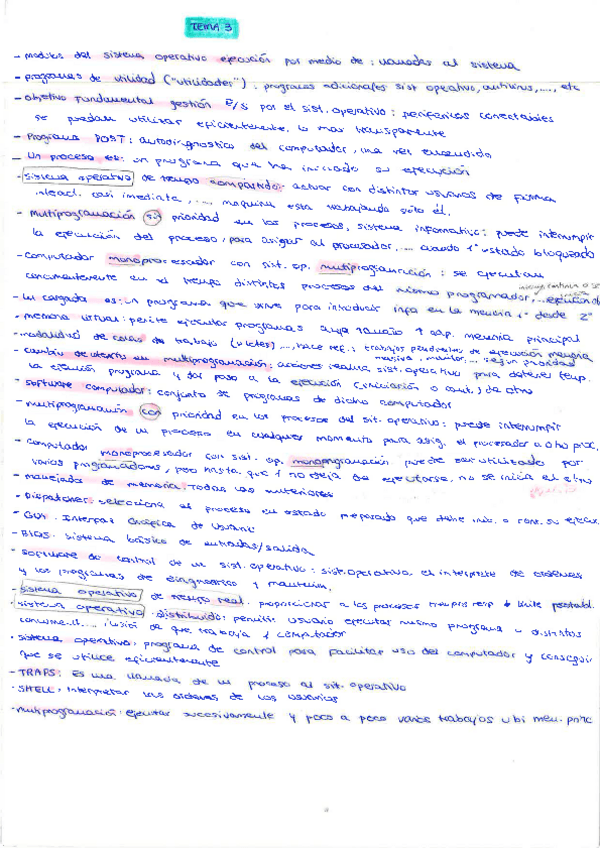 TEMA 3
- modulos del sistema operativo ejecución por medio de: llamadas al sistema
- programas de utilidad ("utilidades"): programas adicionales sist operativo, antivirus, ..., etc
- objetivo fundamental gestión E/S por el sist. operativo: perifericos conectables
se puedan utilizar eficientemente, lo mas transparente
- Programa POST: autodiagnostico del computador, una vez encendido
- Un proceso es: un programa que ha iniciado su ejecución
- sistema operativo de tiempo compartido: actuar con distintos usuarios de forma
interact. casi inmediata, ..., maquina esta trabajando solo él.
- Multiprogramación sin prioridad en los procesos, sistema informatico: puede interrumpir
la ejecución del proceso, para asignar al procesador, ... cuando 1º estado bloqueado
- computador monoprocesador con sist. op. multiprogramación: se ejecutan
concurrentemente en el tiempo distintos procesos del mismo programador, ...
- Un cargador es: un programa que sirve para introducir info en la memoria 1ª desde 2ª
- memoria virtual: permite ejecutar programas cuyo tamaño ↑ cap. memoria principal
- modalidad de colas de trabajo (), hace ref.: trabajos pendientes de ejecución memoria
masiva, ... según prioridad
- cambio de contexto en multiprogramación: acciones realiza sist. operativo para detener temp.
la ejecución programa y dar paso a la ejecución (iniciación o cont.) de otro
- software computador: conjunto de programas de dicho computador
- multiprogramación con prioridad en los procesos del sist. operativo: puede interrumpir
la ejecución de un proceso en cualquier momento para asig. el procesador a otro proc.
- computador monoprocesador con sist. op. monoprogramación puede ser utilizado por
varios programadores, pero hasta que 1 no deja de ejecutarse, no se inicia el otro
- manejador de memoria: todas las anteriores
- Dispatcher: selecciona el proceso en estado preparado que debe inic. o cont. su ejecuc.
- GUI. Interfaz Gráfica de Usuario
- BIOS. sistema básico de entradas/salida
- software de control de un sist. operativo: sist. operativo, el interprete de ordenes
y los programas de diagnostico y manten.
- sistema operativo de tiempo real. proporcionar a los procesos tiempos resp ↓ limite
- sistema operativo distribuido: permitir usuario ejecutar mismo programa u distintos
... ilusión de que trabaja 1 computador
- sistema operativo: programa de control para facilitar uso del computador y conseguir
que se utilice eficientemente
- TRAPS: Es una llamada de un proceso al sist. operativo
- SHELL: Interpretar las ordenes de los usuarios
- multiprogramación: ejecutar sucesivamente y poco a poco varios trabajos ubi mem. princ